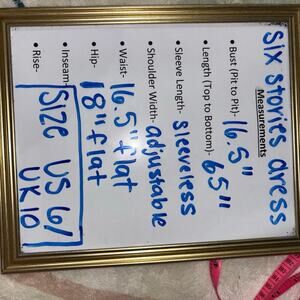 Six stories dress
Measurements
• Bust (Pit to Pit)- 16.5"
• Length (Top to Bottom)- 65"
• Sleeve Length- sleeveless
• Shoulder Width- adjustable
• Waist- 16.5" flat
• Hip- 18" flat
• Inseam-
• Rise-
Size US 6/
UK 10